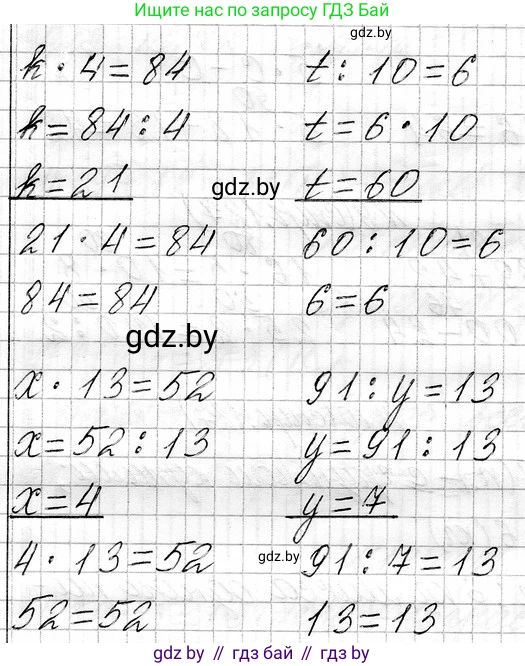 Ищите нас по запросу ГДЗ Бай
gdz.by
k · 4 = 84
k = 84 : 4
k = 21
21 · 4 = 84
84 = 84
t : 10 = 6
t = 6 · 10
t = 60
60 : 10 = 6
6 = 6
gdz.by
gdz.by
x · 13 = 52
x = 52 : 13
x = 4
4 · 13 = 52
52 = 52
91 : y = 13
y = 91 : 13
y = 7
91 : 7 = 13
13 = 13
gdz.by
gdz by // гдз бай // гдз by